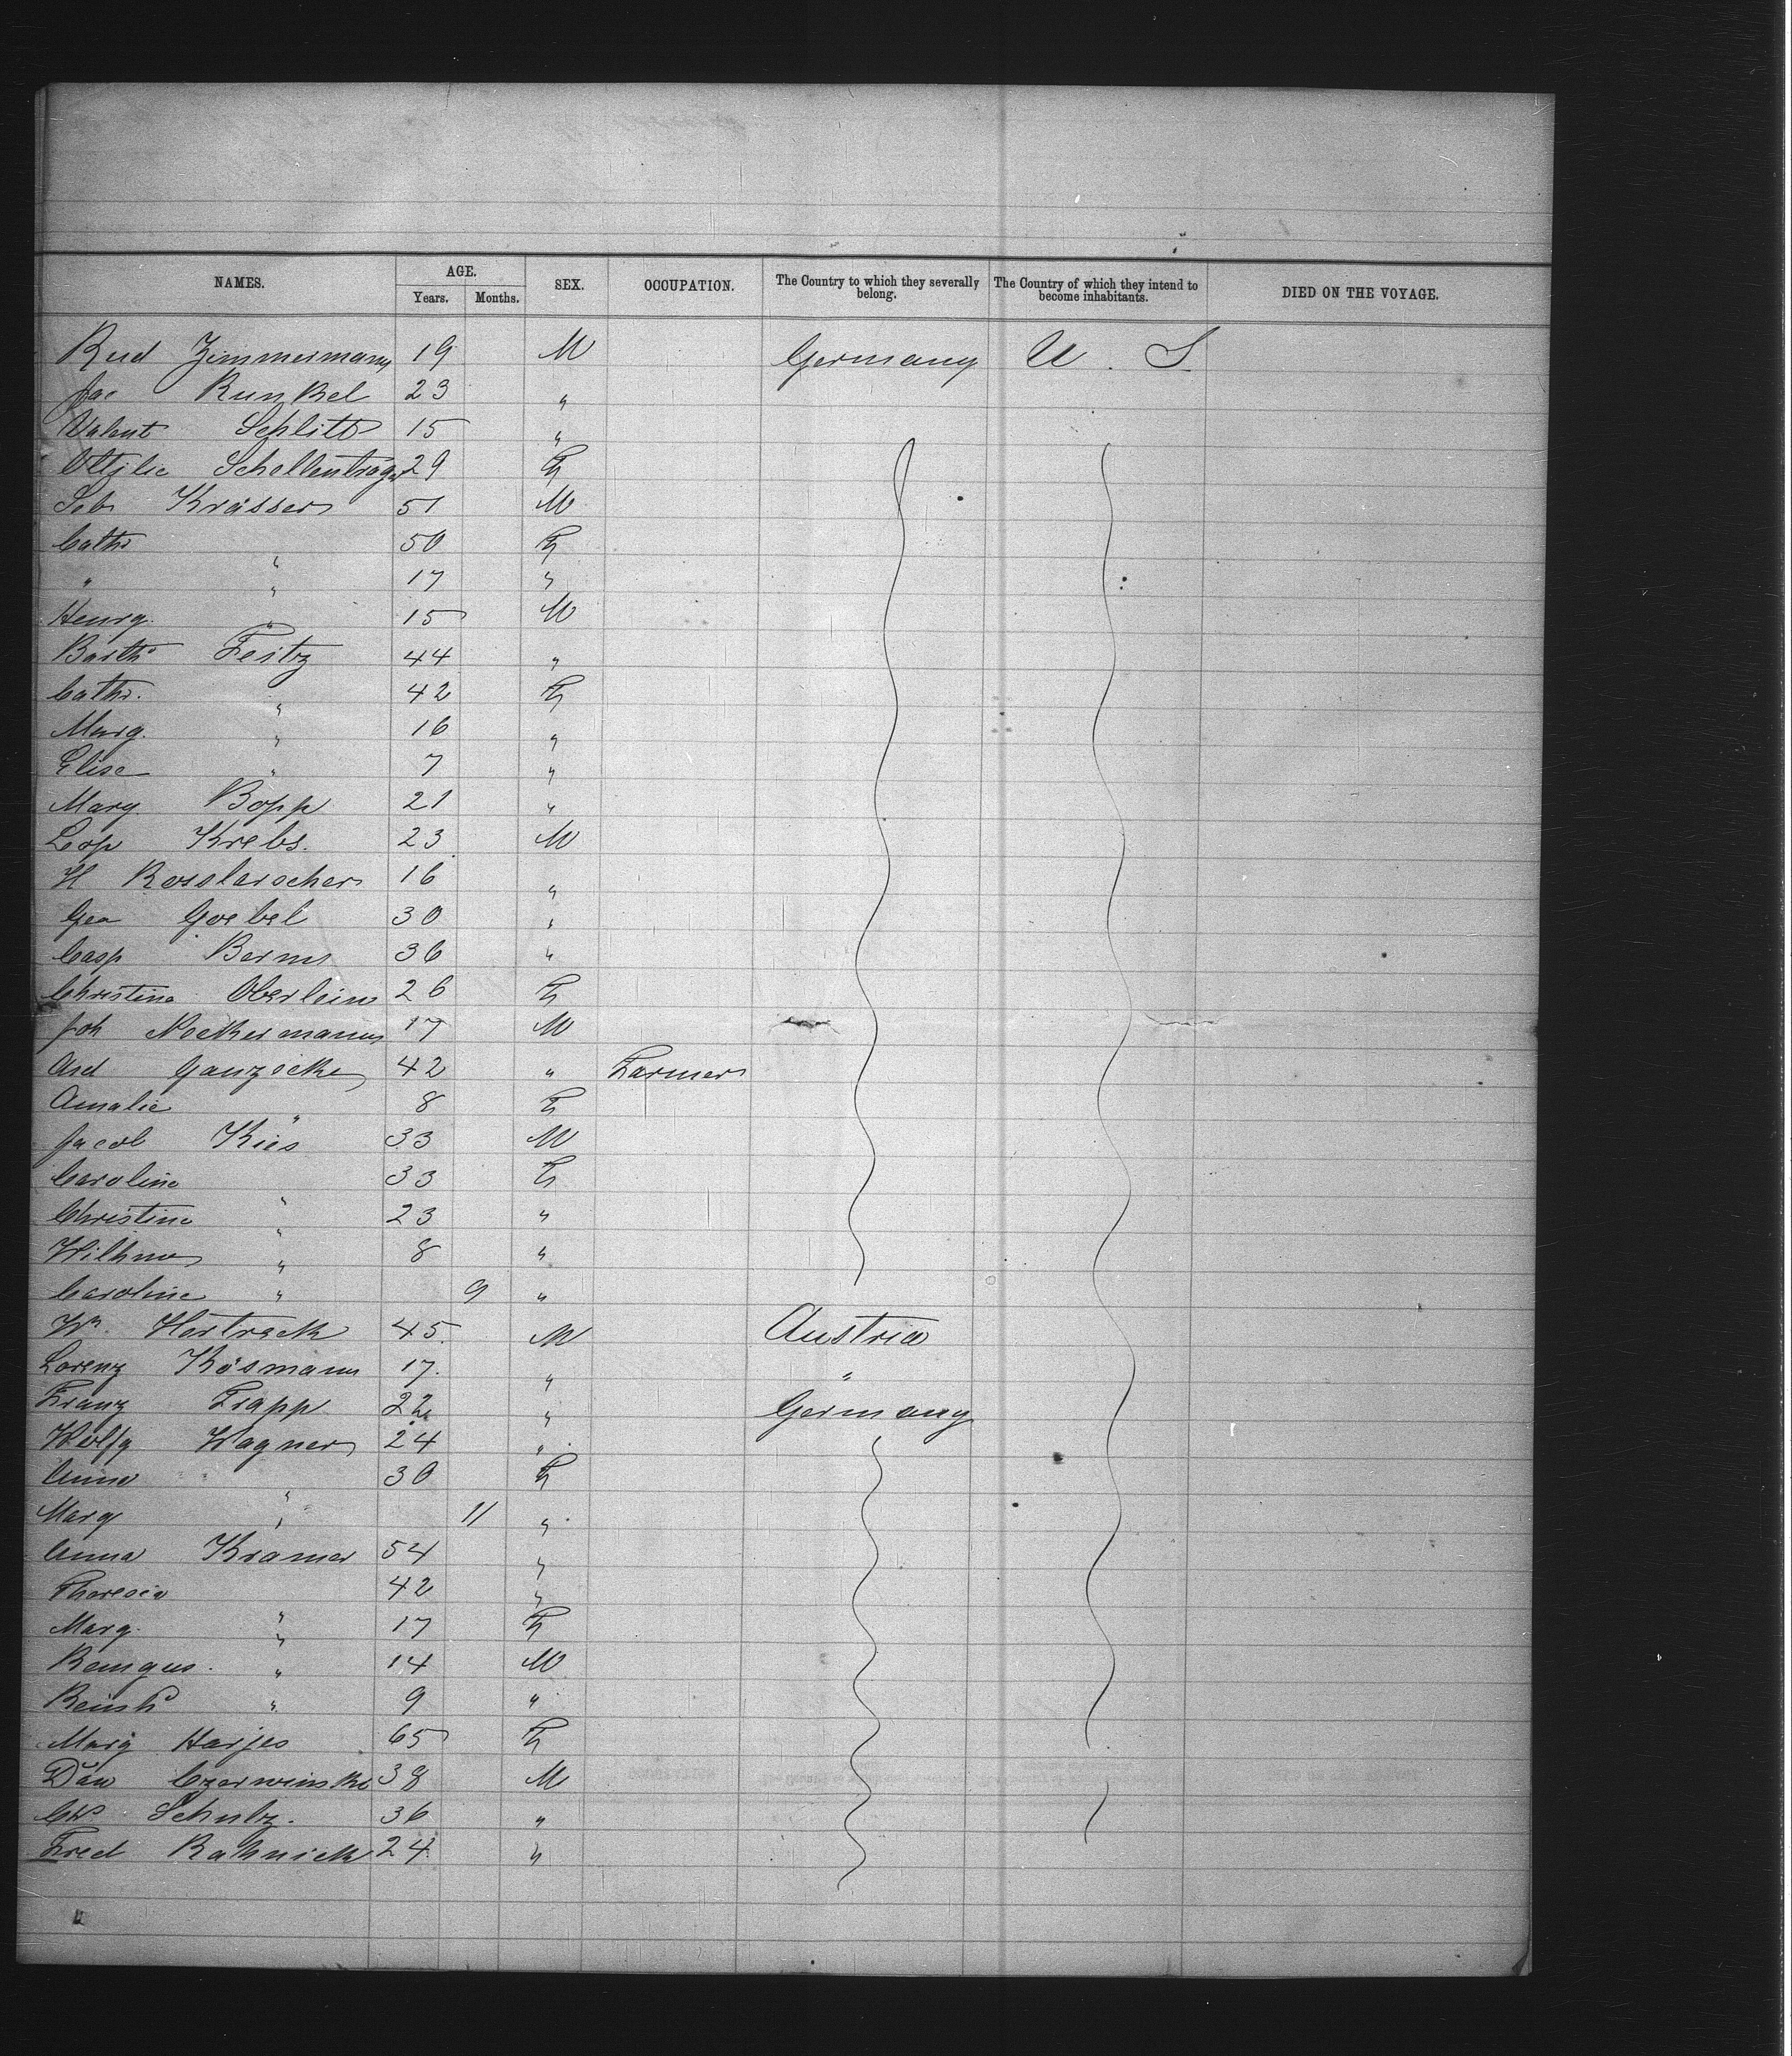 NAMES. AGE. SEX. OCCUPATION. The Country to which they severally belong. The Country of which they intend to become inhabitants. DIED ON THE VOYAGE.
Years. Months.
Rud Zimmermann 19 M Germany U. S.
Jac Runkel 23 "
Valent Schlitt 15 "
Ottilie Schellentrager 29 F
Seb Krässer 51 M
Cath " 50 F
" " 17 "
Henry " 15 M
Barth Feitz 44 "
Cath. " 42 F
Marg. " 16 "
Elise " 7 "
Marg Bopp 21 "
Leop Krebs. 23 M
H Rosslarscher 16 "
Geo Goebel 30 "
Casp Berms 36 "
Christine Oberlein 26 F
Joh Neckermann 17 M
Ard Ganzecke 42 " Farmer
Amalie " 8 F
Jacob Kies 33 M
Caroline " 33 F
Christine " 23 "
Wilhm " 8 "
Caroline " 9 "
Wm. Hertreck 45 M Austria
Lorenz Kösmann 17 " "
Franz Trapp 22 " Germany
Wolfg Wagner 24 "
Anna " 30 F
Marg " 11 "
Anna Kramer 54 "
Theresia " 42 "
Marg. " 17 F
Remgus. " 14 M
Reinh " 9 "
Marg Harjes 65 F
Dan Czerwinske 38 M
Chs Schulz. 36 "
Fred Rahnick 24 "